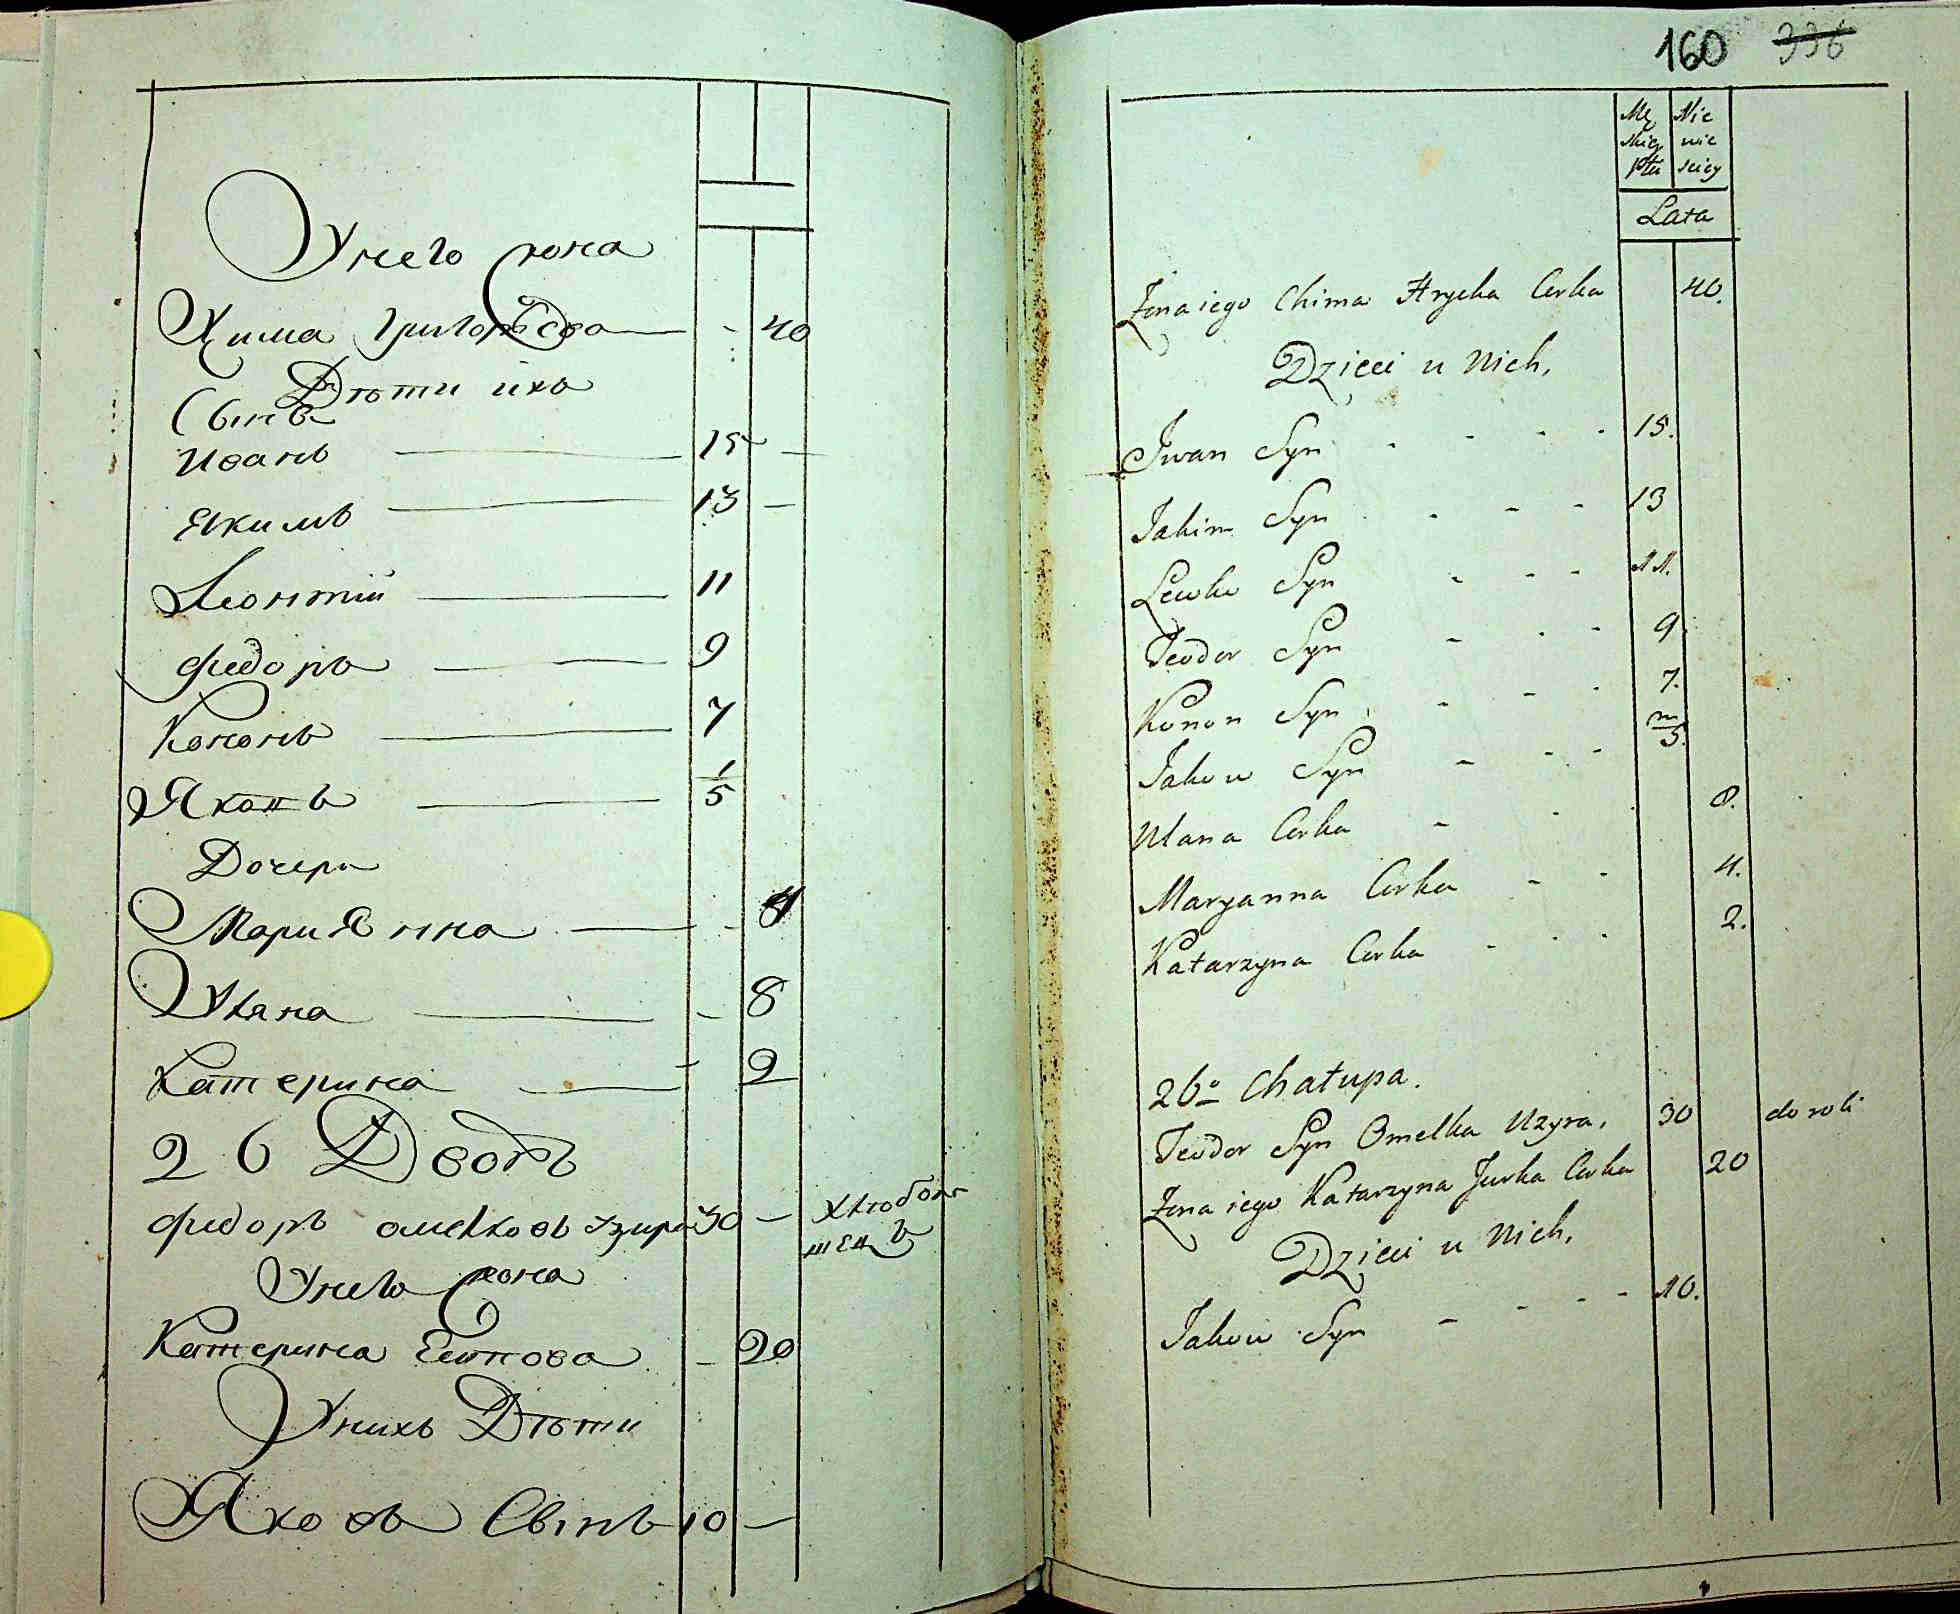 Унего жена
Хима Григорьева — - 40
Дѣти ихъ
Сынъ
Иванъ — 15 —
Якимъ — 13 —
Леонтій — 11
Федоръ — 9
Кононъ — 7
Яковъ — 1/5
Дочери
Мариянна — - 4
Уляна — - 8
Катерина — - 2
26 Дворъ
Федоръ Омелковъ Узира 30 — хлѣбопа
шецъ
Унего жена
Катерина - 20
Унихъ Дѣти
Яковъ Сынъ 10 —
160 336
Mę Nie
skiej wie
płci sciey
Lata
Zona iego Chima Hryćka Corka 40.
Dzieci u Nich,
Iwan Syn - - - - 15.
Jakim Syn - - - 13
Lewko Syn - - - 11.
Teodor Syn - - - 9.
Konon Syn - - - 7.
Jakow Syn - - - m/5.
Ulana Corka - - 8.
Maryanna Corka - - 4.
Katarzyna Corka - - - 2.
26o Chałupa.
Teodor Syn Omelka Uzyra, 30 do roli
Zona iego Katarzyna Jurka Corka 20
Dzieci u Nich,
Jakow Syn - - - - 10.